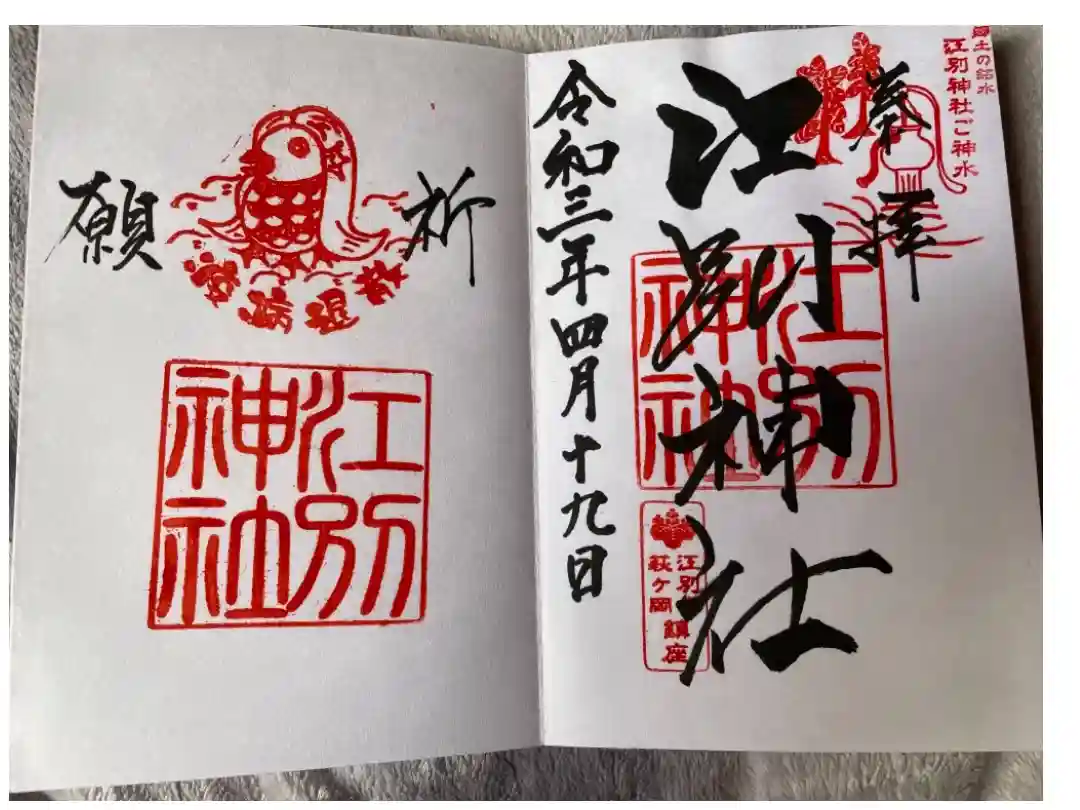 郷土の銘水
江別神社ご神水
奉拝
江別神社
江別
神社
江別
萩ヶ岡
鎮座
令和三年四月十九日
祈
願
疫病退散
江別
神社